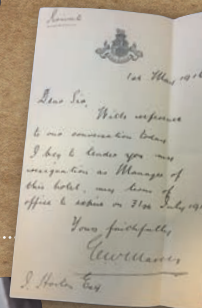 1st May 191
Dear Sir,
With reference
to our conversation today
I beg to tender you my
resignation as Manager of
this hotel, my term of
office to expire on 31st July 191
Yours faithfully
Esq